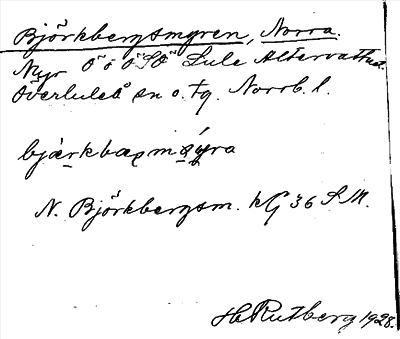 Björkbergsmyren, Norra.
Myr O o ö SO Lule Altervattnet.
Överluleå sn o. tg. Norrb. l.
bjærkbaxmyra
N. Björkbergsm. kG 36 S.M.
H Rutberg 1928.